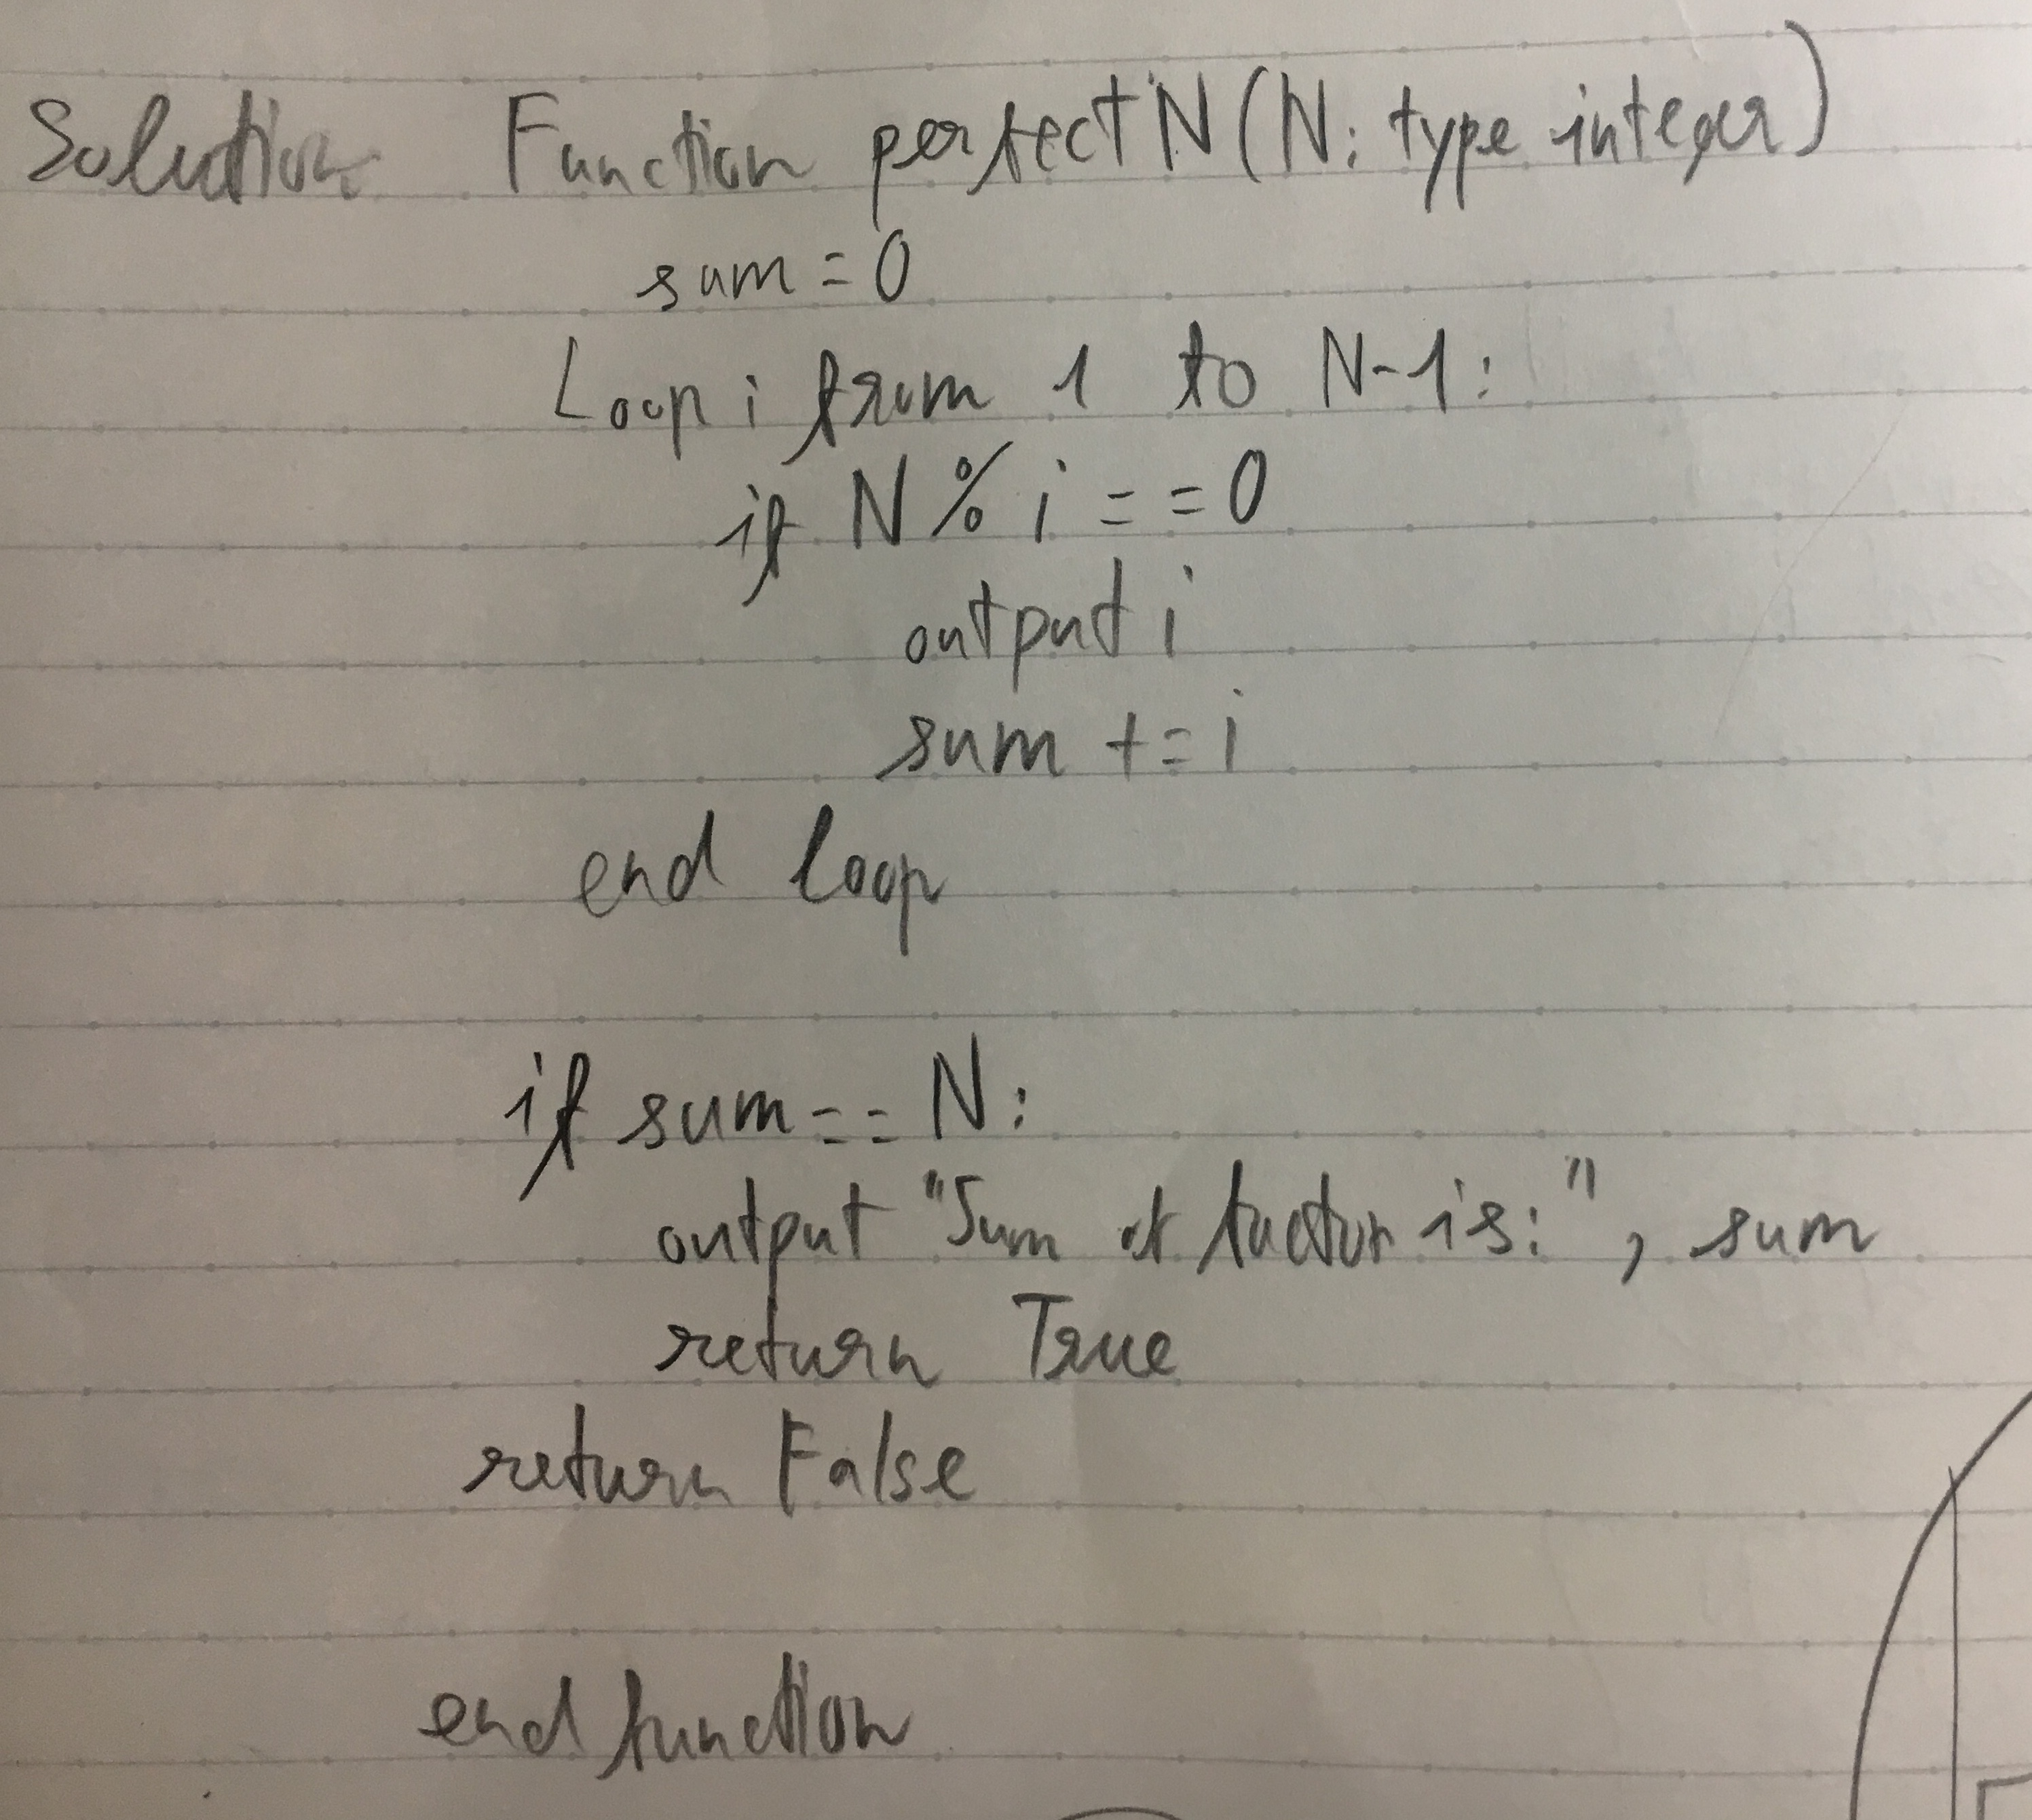 Solution Function perfectN(N: type integer)
sum = 0
Loop i from 1 to N-1:
if N % i == 0
output i
sum += i
end loop
if sum == N:
output "Sum of factor is:", sum
return True
return False
end function